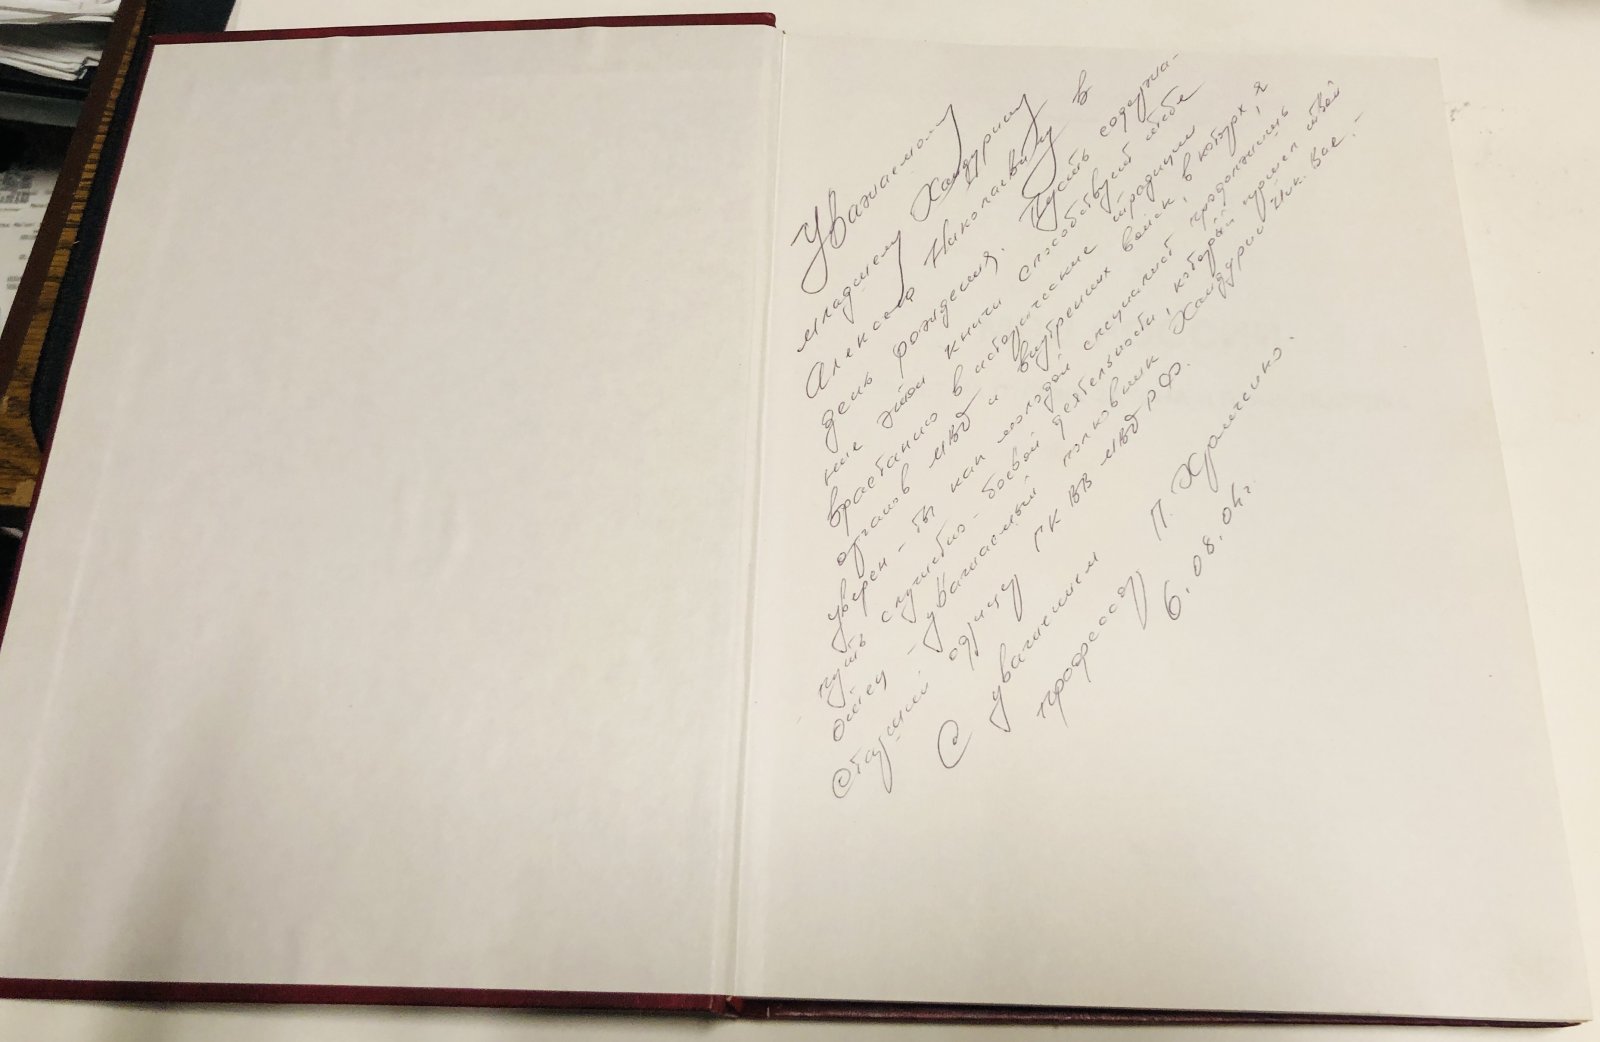 Уважаемому
младшему Хандурину
Алексею Николаевичу в
день рождения. Пусть содержа-
ние этой книги способствует тебе
врастанию в исторические традиции
органов МВД и внутренних войск, в которых, я
уверен - ты как молодой специалист продолжишь
путь служебно-боевой деятельности, который прошел твой
отец - уважаемый полковник Хандурин Ник. Вас.-
старший ГК ВВ МВД РФ.
С уважением П. Хромченко.
профессор
6.08.04г.